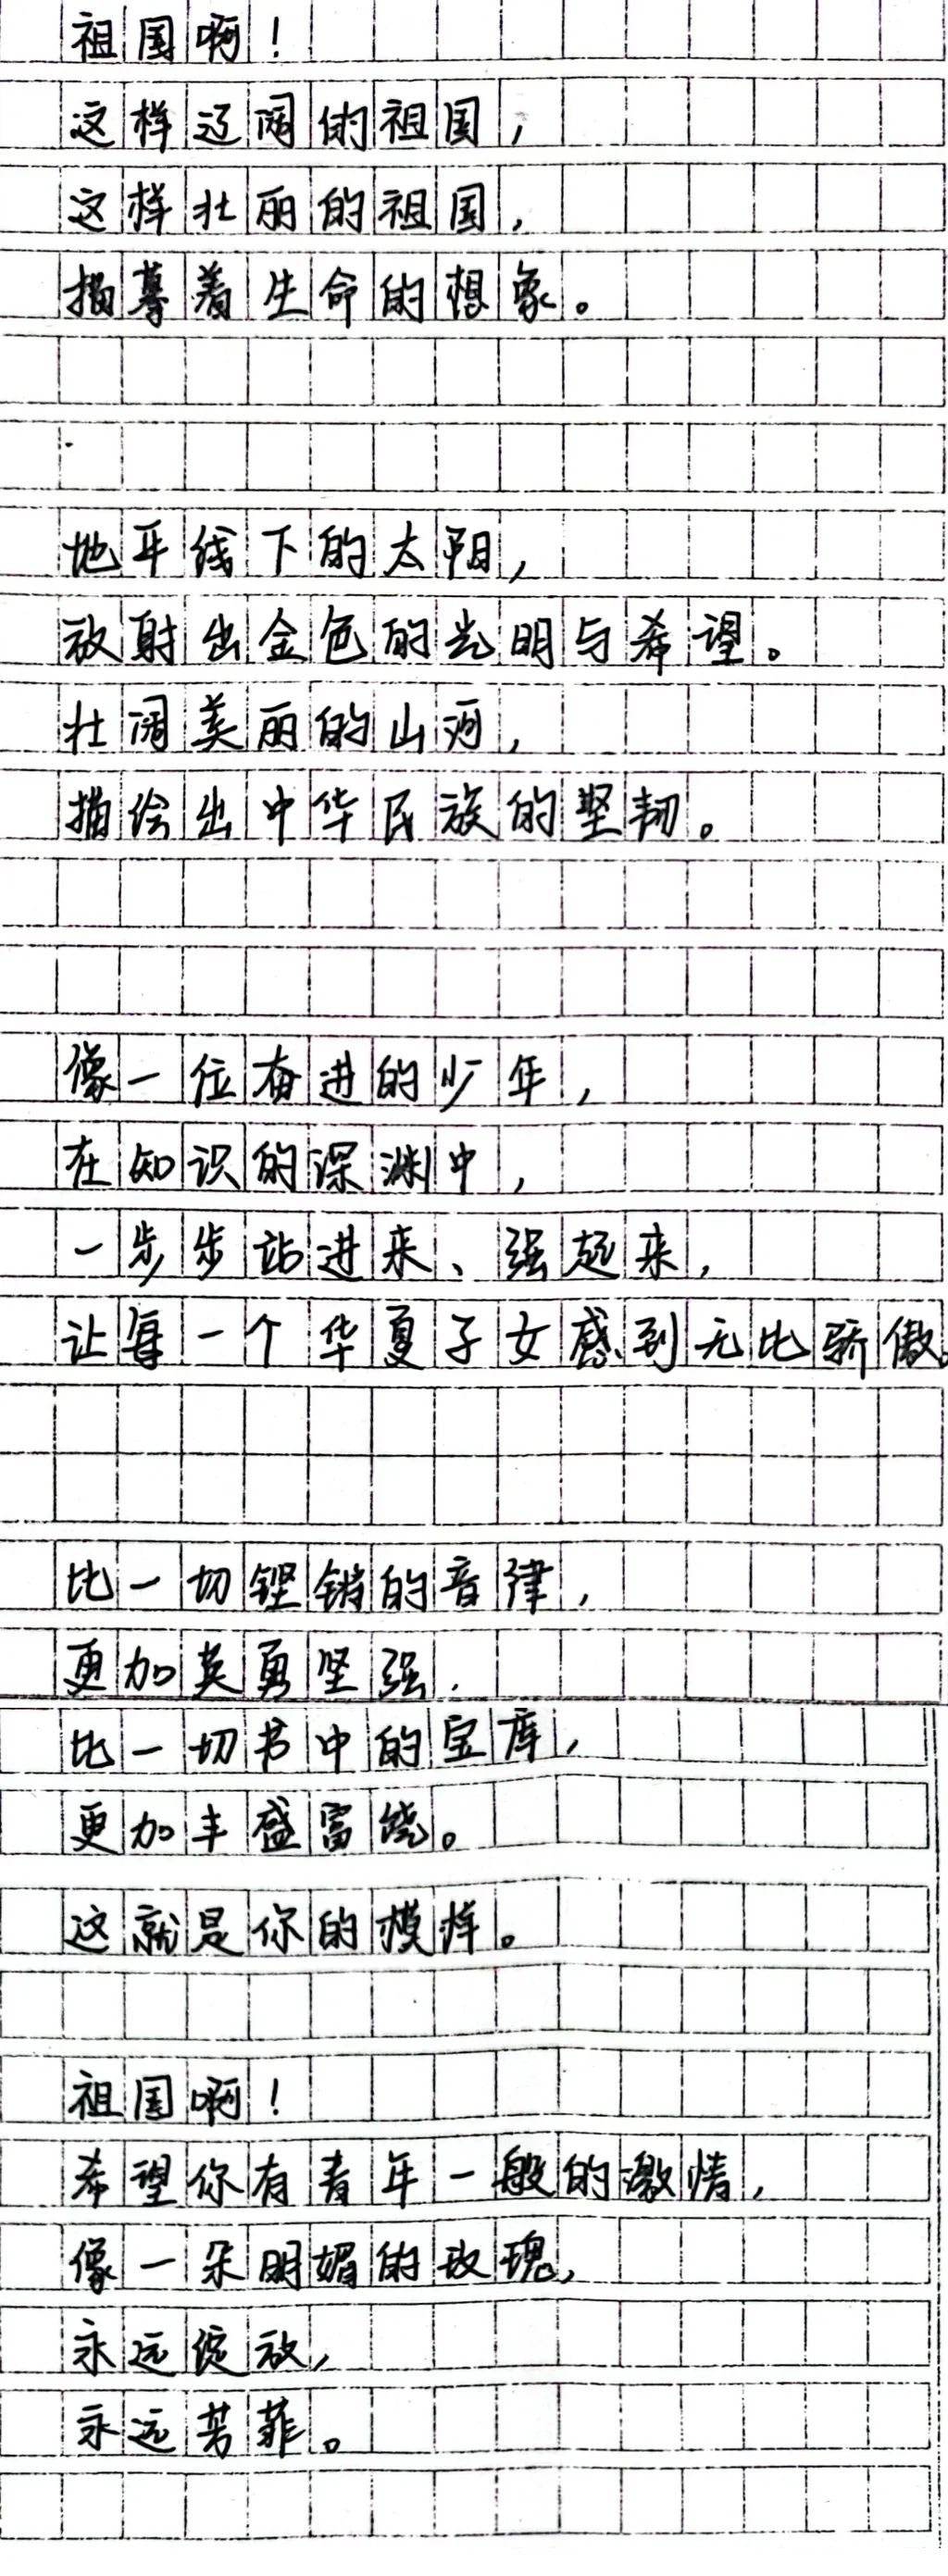 祖国啊！
这样辽阔的祖国，
这样壮丽的祖国，
描摹着生命的想象。
地平线下的太阳，
放射出金色的光明与希望。
壮阔美丽的山河，
描绘出中华民族的坚韧。
像一位奋进的少年，
在知识的深渊中，
一步步站进来、强起来，
让每一个华夏子女感到无比骄傲。
比一切铿锵的音律，
更加英勇坚强.
比一切书中的宝库，
更加丰盛富饶。
这就是你的模样。
祖国啊！
希望你有青年一般的激情，
像一朵明媚的玫瑰，
永远绽放，
永远芳菲。